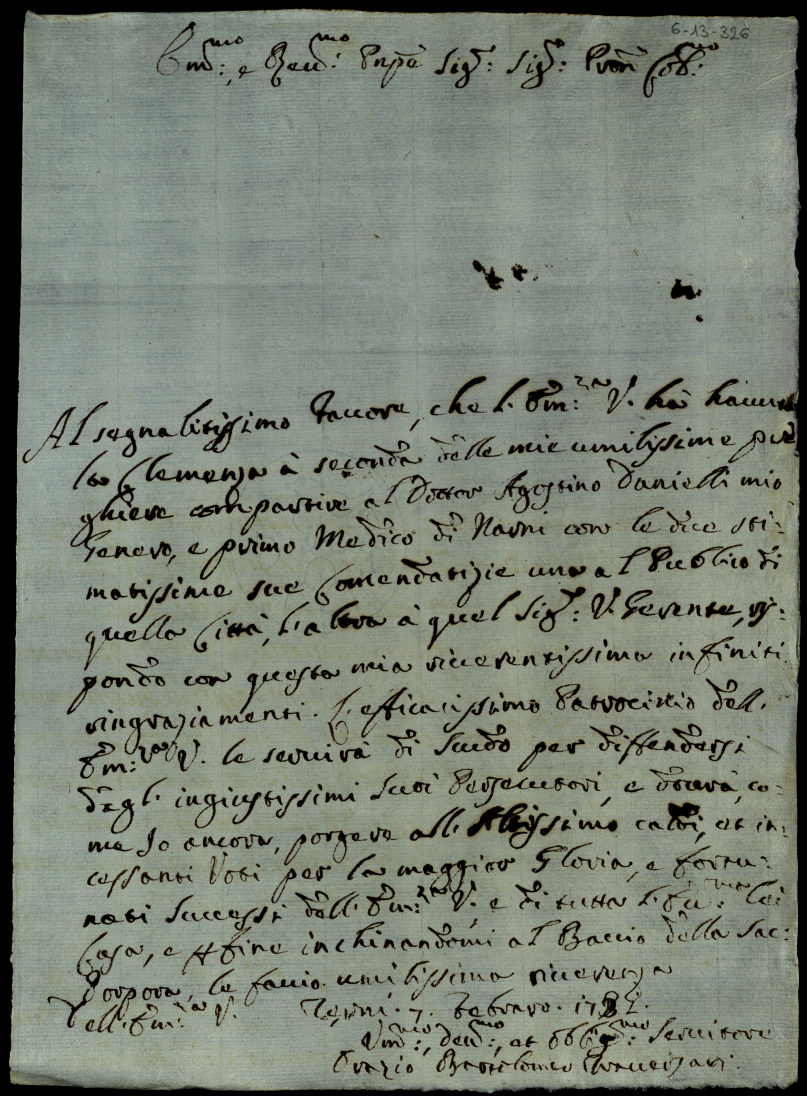 6-13-326
Em:mo, e Reu:mo Pnpẽ Sig:r Sig:r Pron Col:mo
Al segnalitissimo Fauore, che l'Em:za V. hà hauuto
la Clemenza à seconda delle mie umilissime pre
ghiere compartire al Dottor Agostino Danielli mio
Genero, e primo Medico di Narni con le due sti:
matissime sue Comendatizie una al Publico di
quella Città, l'altra à quel Sig:r V. Gerente, ris:
pondo con questa mia riuerentissima infiniti
ringraziamenti. L'efficacissimo Patrocinio dell'
Em:za V. le seruirà di Scudo per diffendersi
dagl'ingiustissimi suoi Persecutori, e dourà, co:
me Io ancora, porgere all'Altissimo caldi, et in:
cessanti Voti per la maggior Gloria, e fortu:
nati Successi dell'Em:za V., e di tutta l' lei
Casa, e fine inchinandomi al Baccio della Sac:
Porpora, le faccio umilissima riuerenza
Dell'Em:za V. Terni 7. Febraro
Vm:mo, deu:mo, et obblig:mo Seruitore
Orazio Bartolomeo